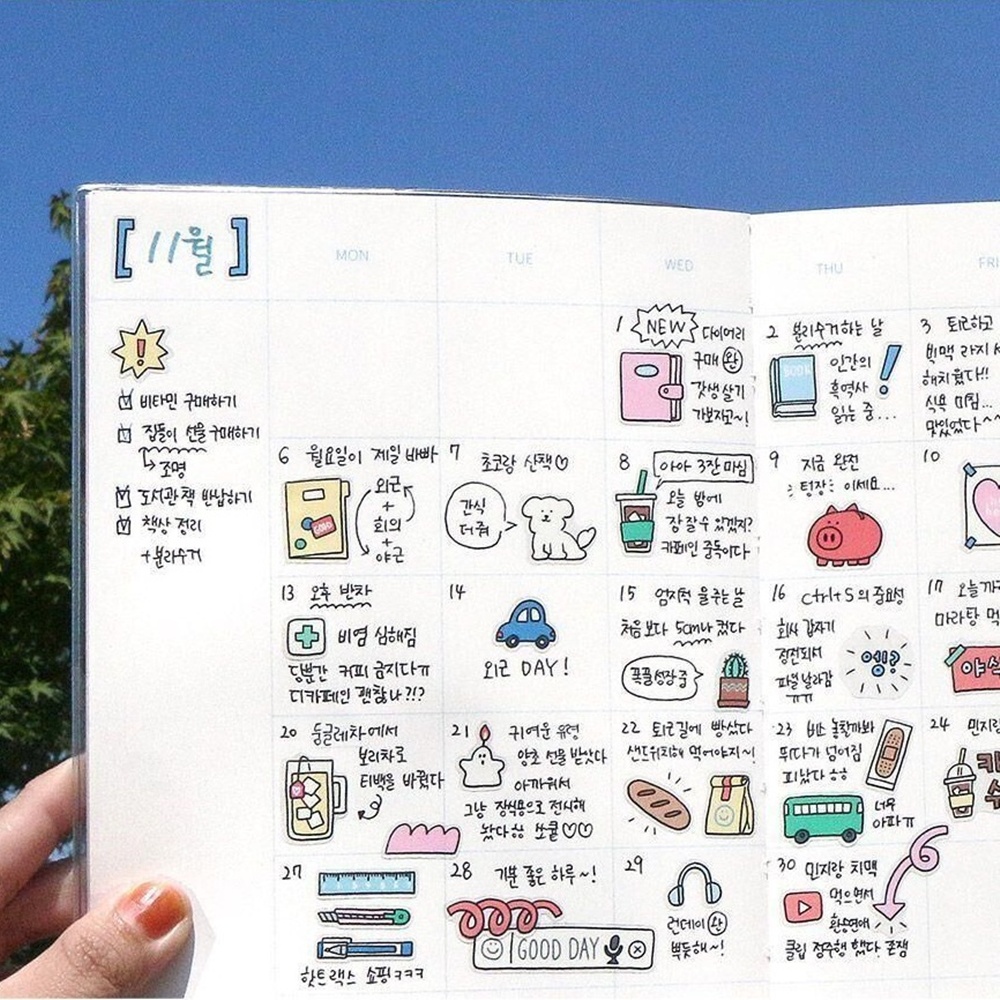 [ 11월 ]
MON
TUE
WED
THU
FRI
!
비타민 구매하기
집들이 선물 구매하기
조명
도서관 책 반납하기
책상 정리
+분리수거
1 NEW 다이어리
구매 완
갓생살기
가보자고~!
2 분리수거하는 날
BOOK
인간의
흑역사
읽는 중...
3 퇴근하고
빅맥 라지
해치웠다!!
식욕 미침...
맛있었다~~
6 월요일이 제일 바빠
외근
+
회의
+
야근
7 초코랑 산책♡
간식
더 줘
8 아아 3잔 마심
오늘 밤에
잠 잘 수 있겠지?
카페인 중독이다
9 지금 완전
텅장 이세요...
10
13 오후 반차
비염 심해짐
당분간 커피 금지다ㅠ
디카페인 괜찮나?!?
14
외근 DAY!
15 엄지척 물주는 날
처음보다 5cm나 컸다
폭풍성장중
16 Ctrl+S의 중요성
회사 갑자기
정전되서
파일 날라감
ㅠㅠ
엥!?
17
마라탕
야식
20 둥글레차에서
보리차로
티백을 바꿨다
21 귀여운 유령
양초 선물 받았다
아까워서
그냥 장식용으로 전시해
놨다ㅎㅎ 쏘쿨♡♡
22 퇴근길에 빵샀다
샌드위치해 먹어야지~!
23 버스 놓칠까봐
뛰다가 넘어짐
피났다ㅎㅎ
너무
아파ㅠ
24 민지랑
27
핫트랙스 쇼핑ㅋㅋㅋ
28 기분 좋은 하루~!
GOOD DAY
29
런데이 완
뿌듯해~!
30 민지랑 치맥
먹으면서
환승연애
클립 정주행 했다. 존잼